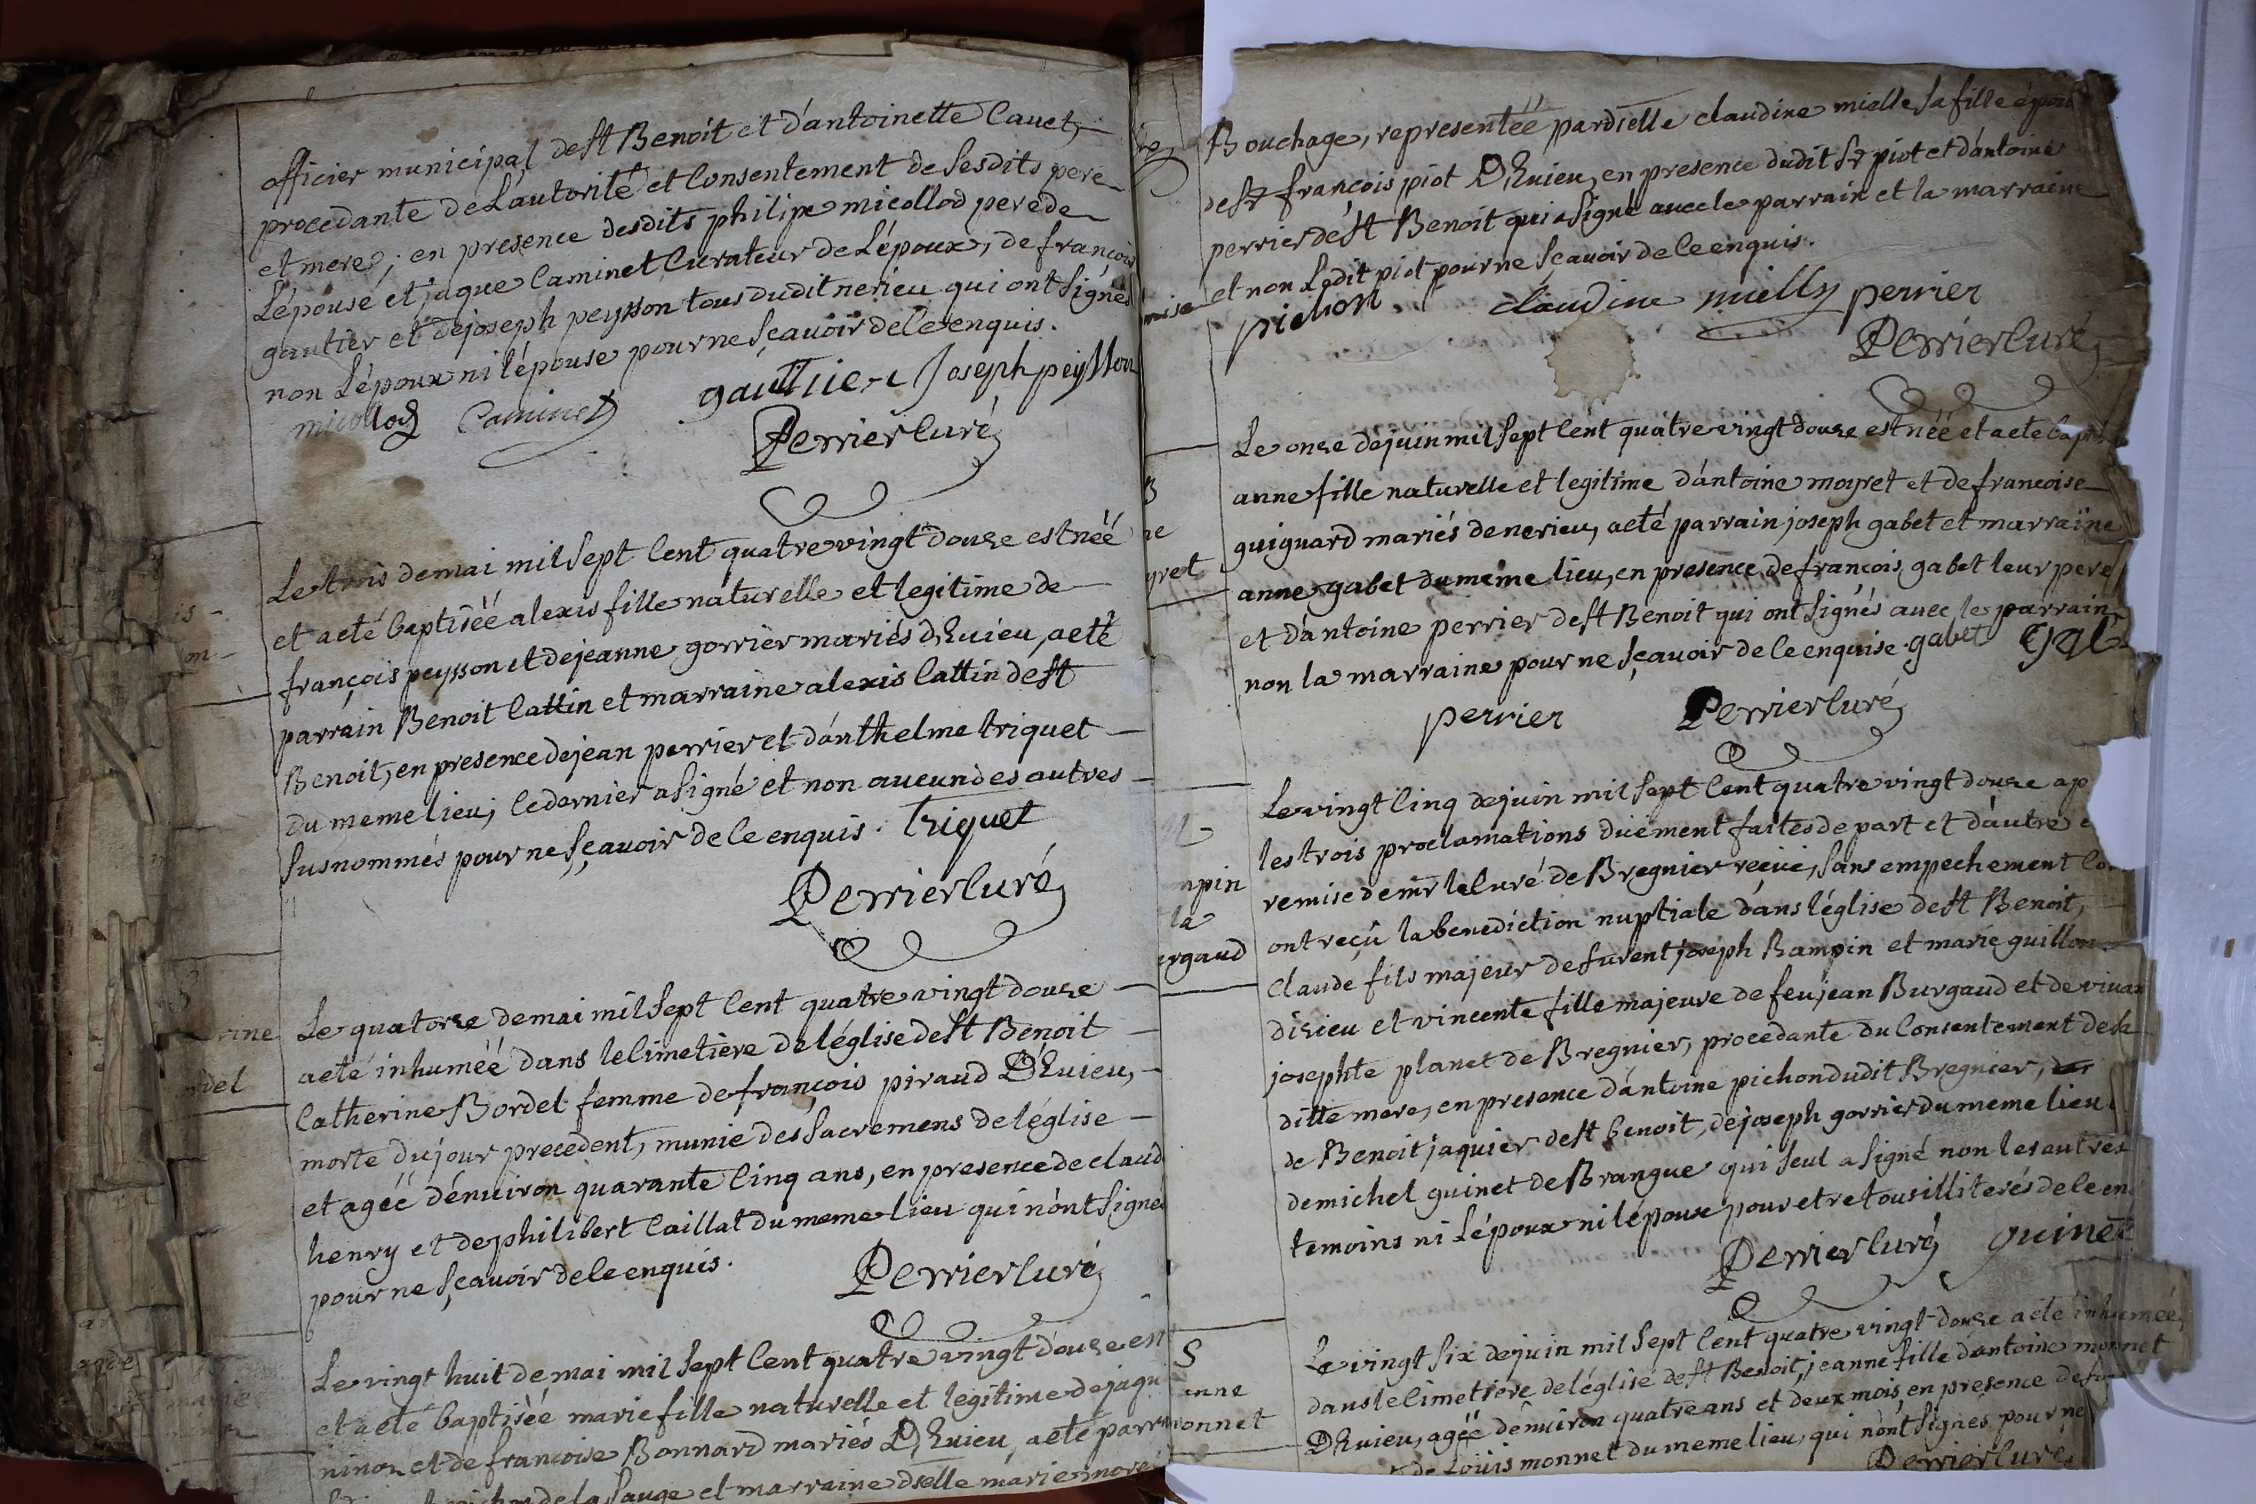 officier municipal de st Benoit et d'antoinette Cavet,
procedante de L'autorité et Consentement de sesdits pere
et mere; en presence desdits philipe micollod pere de
L'épouse et jaque Caminet Curateur de L'époux, de francois
gautier et de joseph peysson tous dudit nerieu qui ont signés
non L'époux ni l'épouse pour ne sçavoir de ce enquis.
micollod Caminet gautier Joseph peysson
Perrier Curé
Le trois de mai mil sept Cent quatre vingt douze est néé
et a eté baptiséé alexis fille naturelle et legitime de
françois peysson et de jeanne gorrier mariés d'Evieu, a eté
parrain Benoit Cattin et marraine alexis Cattin de st
Benoit, en presence de jean perrier et d'anthelme triquet
du meme lieu; le dernier a signé et non aucun des autres
susnommés pour ne sçavoir de ce enquis. Triquet
Perrier Curé
rine
rdel
Le quatorze de mai mil sept Cent quatre vingt douze
a eté inhuméé dans le Cimetiere de l'église de st Benoit
Catherine Bordel femme de françois piraud D'Evieu,
morte du jour precedent, munie des sacremens de l'église
et agéé d'environ quarante Cinq ans, en presence de claud
henry et de philibert Caillat du meme lieu qui n'ont signé
pour ne sçavoir de ce enquis.
Perrier Curé
Le vingt huit de mai mil sept Cent quatre vingt douze est
et a eté baptiséé marie fille naturelle et legitime de jaqu
ninon et de francoise Bonnard mariés D'Evieu, a eté parr
de la sauge et marraine dselle marie
Bouchage, representéé par dselle claudine mielle sa fille épous
de sr françois piot D'Evieu, en presence dudit sr piot et d'antoine
perrier de st Benoit qui a signé avec le parrain et la marraine
et non Ledit piot pour ne sçavoir de ce enquis.
pichon claudine mielly perrier
Perrier Curé
yret
Le onze de juin mil sept Cent quatre vingt douze est néé et a eté bapti
anne fille naturelle et legitime d'antoine moyret et de francoise
guiguard mariés de nerieu, a eté parrain joseph gabet et marraine
anne gabet du meme lieu, en presence de françois gabet leur pere
et d'antoine perrier de st Benoit qui ont signés avec le parrain
non la marraine pour ne sçavoir de ce enquise. gabet Gab
perrier Perrier Curé
mpin
la
rgaud
Le vingt Cinq de juin mil sept Cent quatre vingt douze ap
les trois proclamations duëment faites de part et d'autre e
remise de mr le Curé de Bregnier reçue, sans empechement
ont reçu la benediction nuptiale dans l'église de st Benoit,
Claude fils majeur de furent joseph Rampin et marie guillon
dizieu et vincente fille majeure de feu jean Burgaud et de vivan
josephte planet de Bregnier, procedante du Consentement de sa
ditte mere, en presence d'antoine pichon dudit Bregnier,
de Benoit jaquier de st benoit, de joseph gorrier du meme lieu
de michel guinet de Brangue qui seul a signé non les autres
temoins ni L'époux ni l'epouse pour etre tous illiterés de ce en
Perrier Curé guinet
S
anne
monnet
Le vingt six de juin mil sept Cent quatre vingt douze a eté inhuméé
dans le Cimetiere de l'église de st Benoit, jeanne fille d'antoine monnet
D'Evieu, agéé d'environ quatre ans et deux mois, en presence de
de Loüis monnet du meme lieu, qui n'ont signés pour ne
Perrier Curé